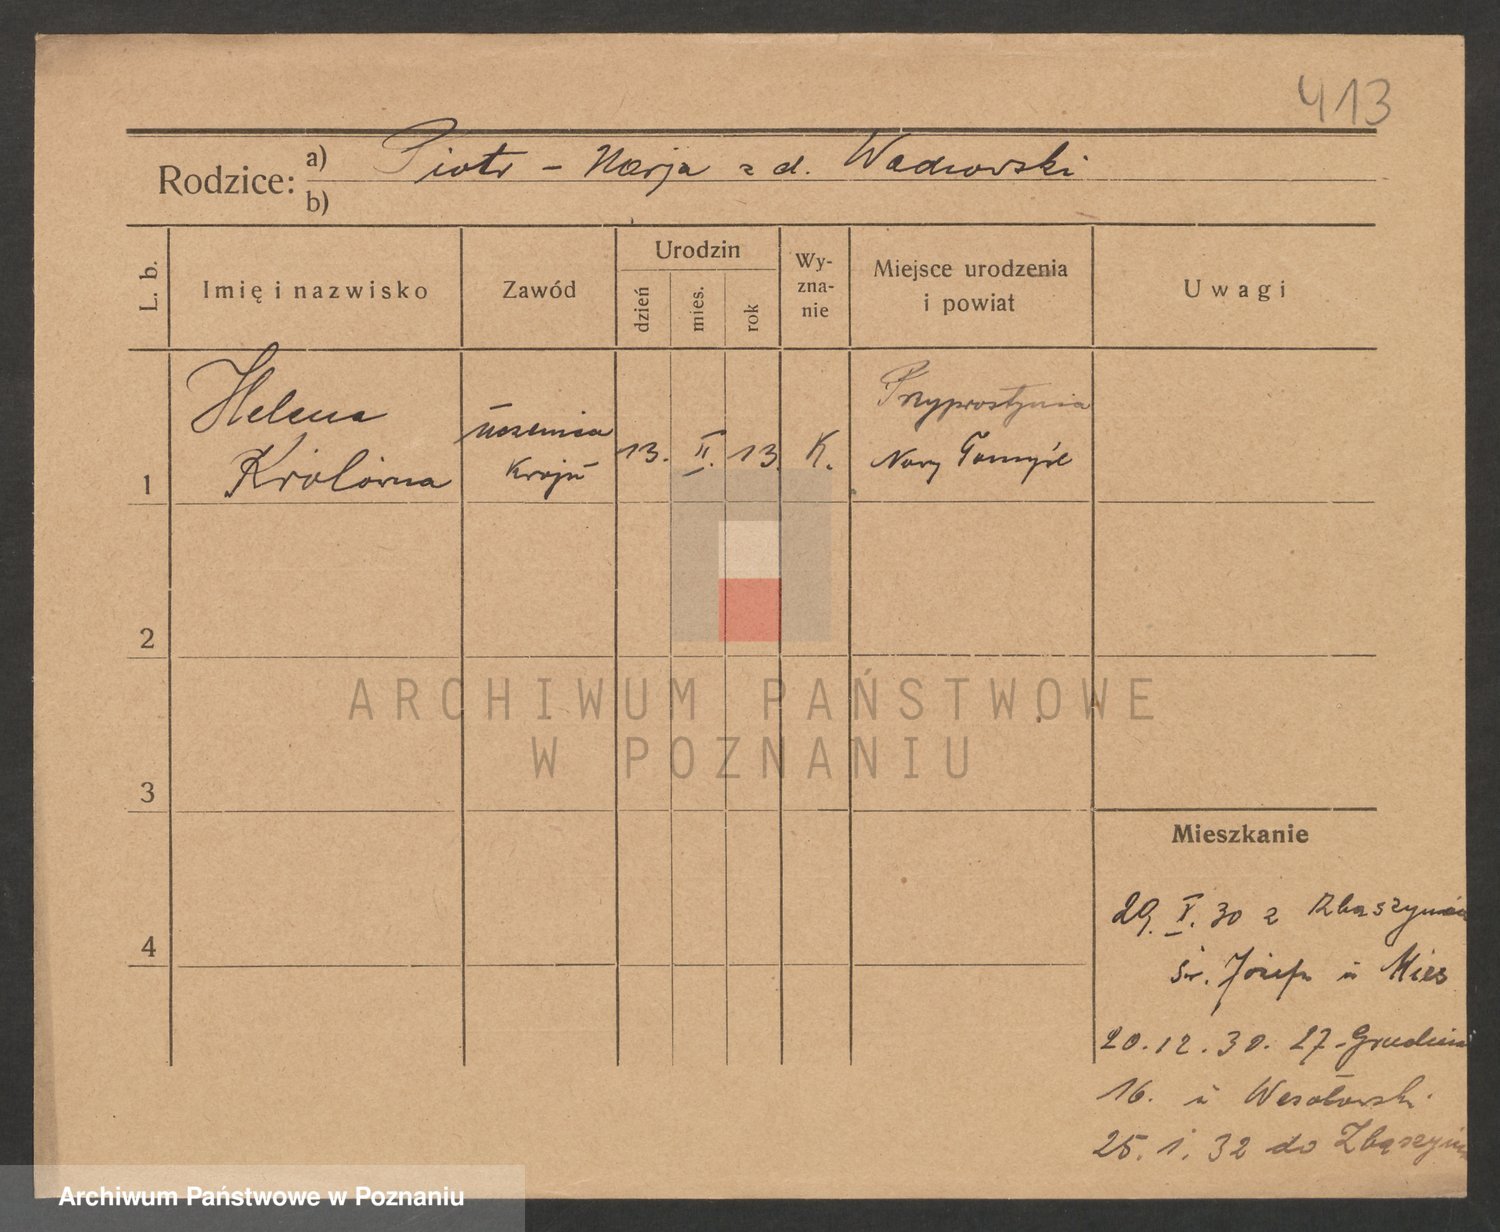 413
Rodzice: a) Piotr – Marja z d. Wadrowski
b)
L. b.
Imię i nazwisko
Zawód
Urodzin
dzień
mies.
rok
Wy-
zna-
nie
Miejsce urodzenia
i powiat
Uwagi
Helena
Królówna
uczenica
kroju
13. II. 13. K.
Przyprostynia
Nowy Tomyśl
1
2
3
4
ARCHIWUM PAŃSTWOWE
W POZNANIU
Mieszkanie
29. V. 30 z Zbąszynia
św. Józefa u
20.12.30. 27-Grudnia
16. u Wesołowski.
25. 1. 32 do Zbąszynia
Archiwum Państwowe w Poznaniu